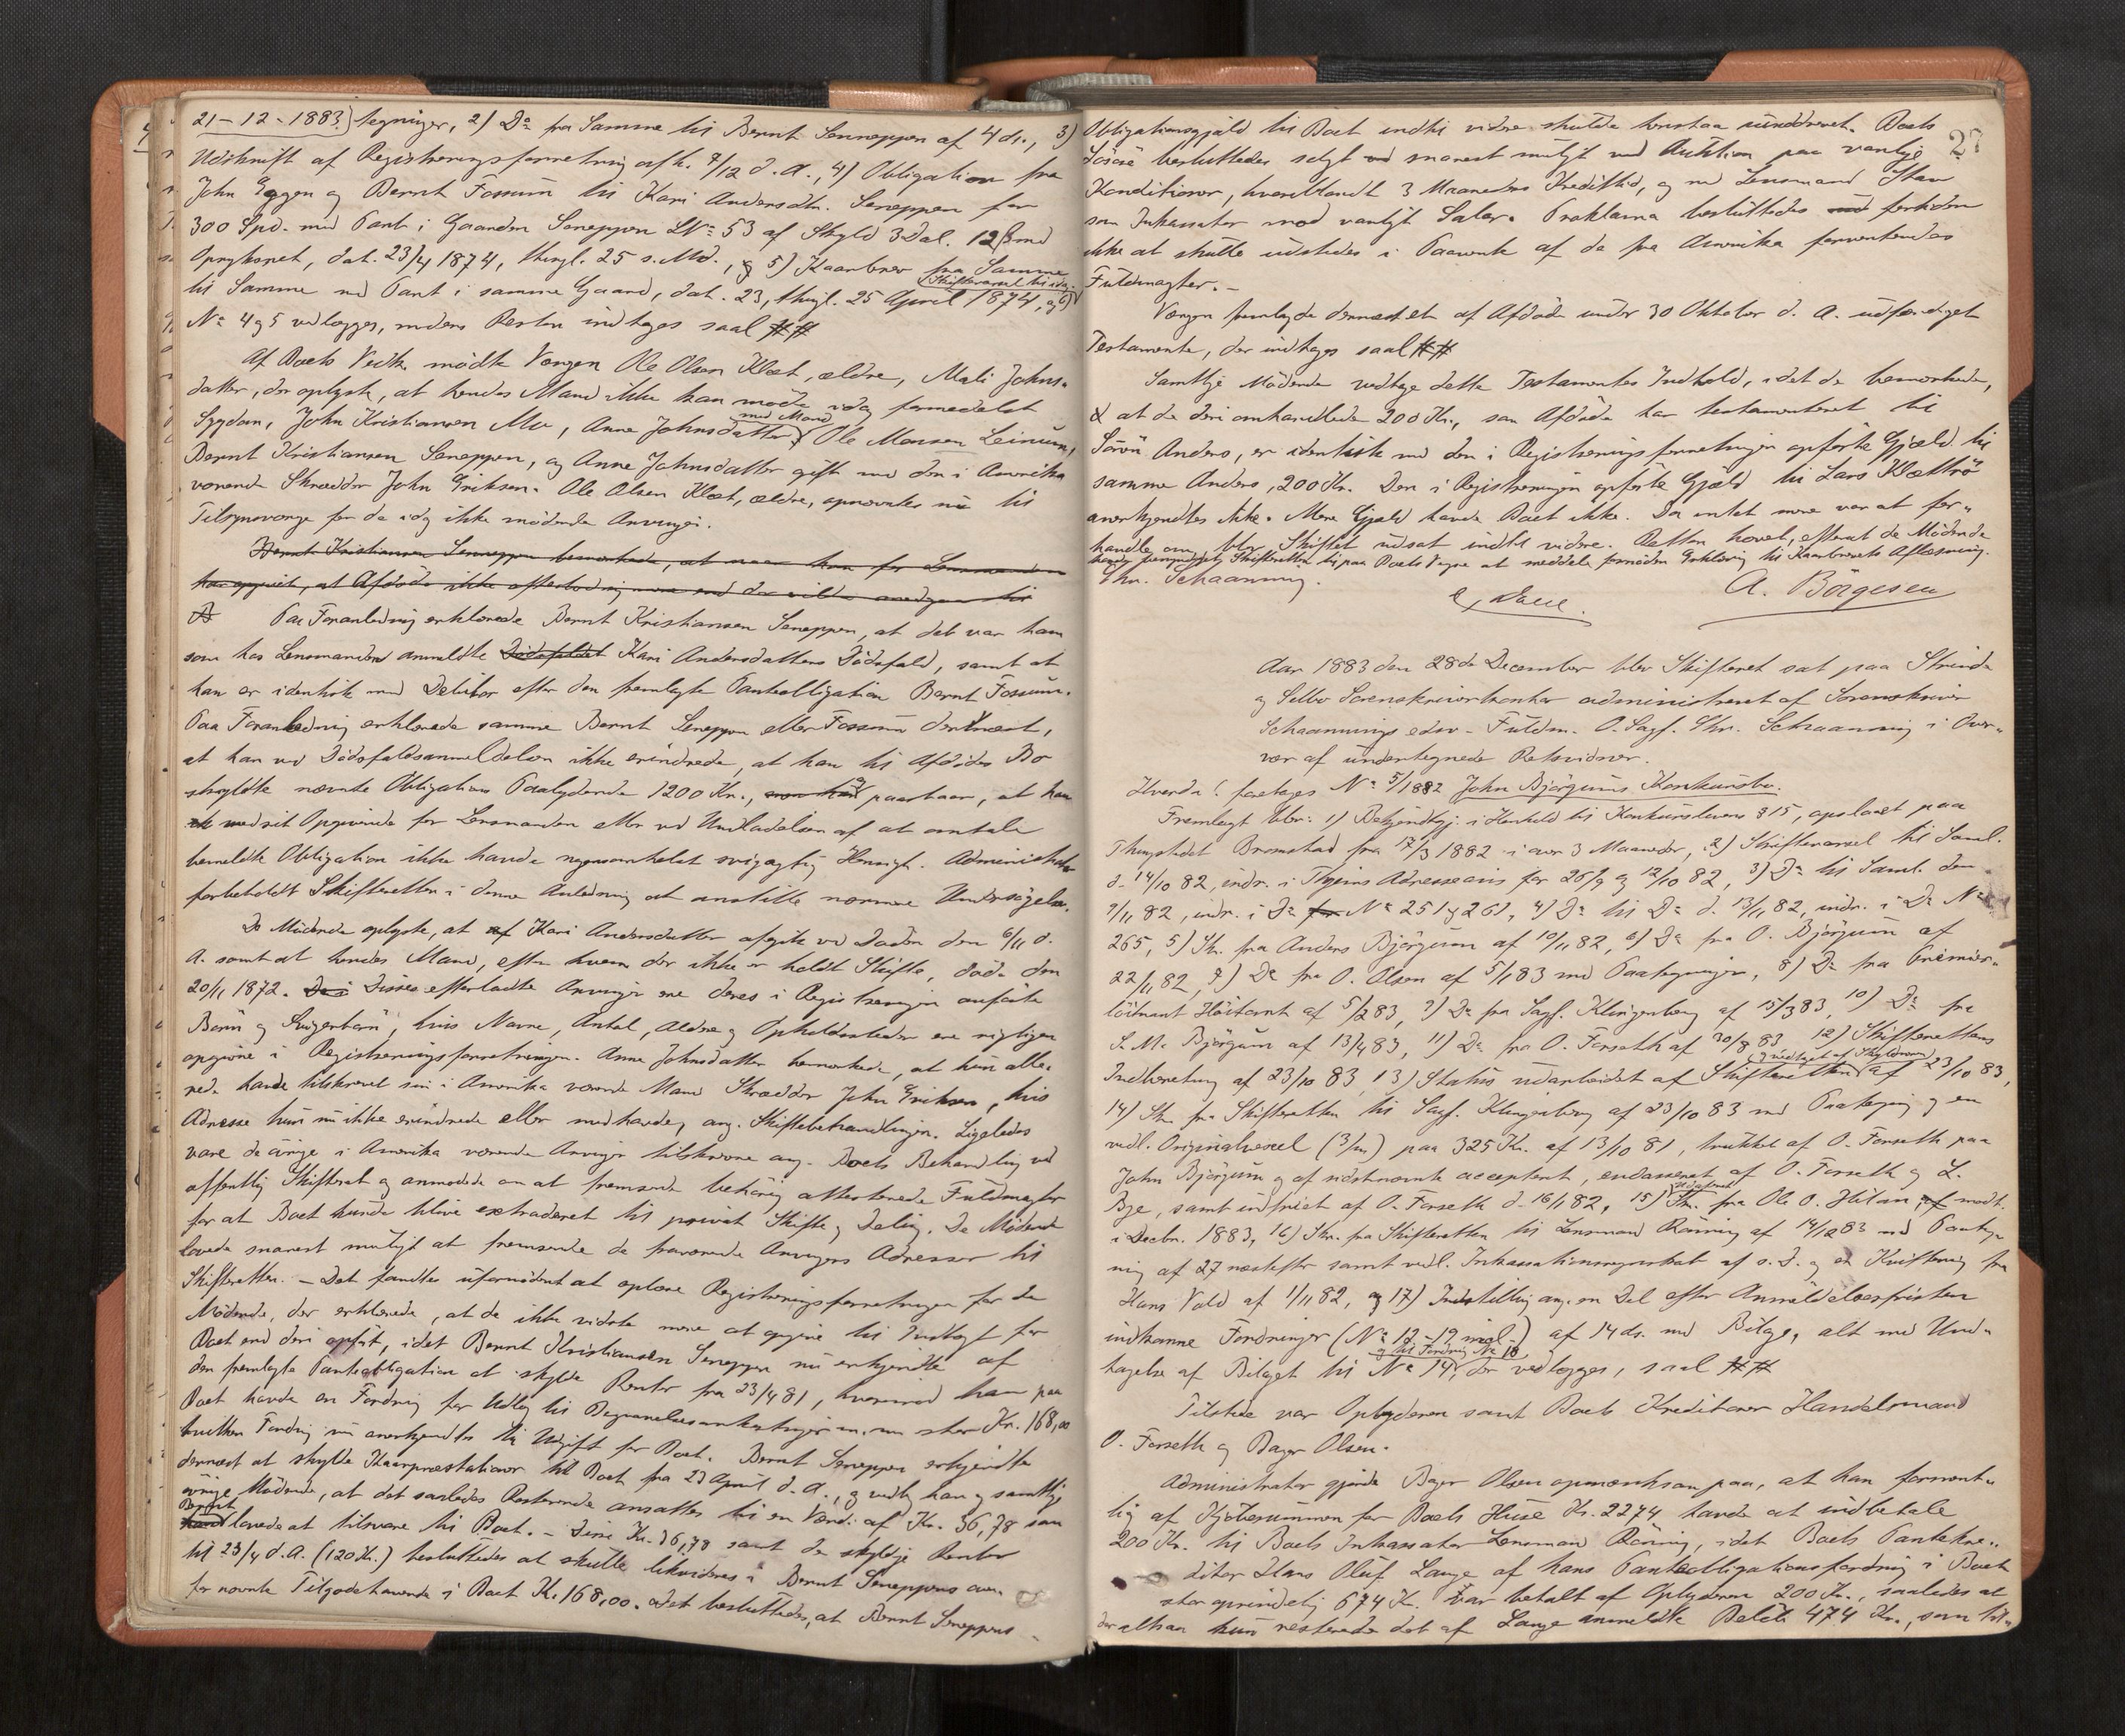 21-12-1883) tegninger, 2) Do fra Samme til Bernt Senneppen af 4 ds., 3)
Udskrift af Registreringsforretning afh. 7/12 d. A., 4) Obligation fra
John Eggen og Bernt Fossum til Kari Andersdtr. Seneppen for
300 Spd. med Pant i Gaarden Seneppen LNo 53 af Skyld 3 Dal. 12 ß med
Opryksret, dat. 23/4 1874, thingl. 25 s. Md., 5) Kaarbrev fra Samme
til Samme med Pant i samme Gaard, dat. 23, thingl. 25 April 1874, og 6) Skiftevarsel til idag.
No 4 og 5 vedlægges, medens Resten indtages saal ##
Af Boets Vedk. mødte Værgen Ole Olsen Klæt, ældre, Mali Johns-
datter, der oplyste, at hendes Mand ikke kan møde idag formedelst
Sygdom, John Kristiansen Mo, Anne Johnsdatter med Mand Ole Monsen Leinum,
Bernt Kristiansen Seneppen, og Anne Johnsdatter gift med den i Amerika
værende Skrædder John Eriksen. Ole Olsen Klæt, ældre, opnævntes nu til
Tilsynsværge for de idag ikke mødende Arvinger.
Bernt Kristiansen Senneppen bemærkede, at naar han for Lensmanden
har opgivet, at Afdøde ikke efterlod sig mere end der vilde medgaa til
Paa Foranledning erklærede Bernt Kristiansen Seneppen, at det var ham
som hos Lensmanden anmeldte Dødsfaldet Kari Andersdatters Dødsfald, samt at
han er identisk med Debitor efter den fremlagte Panteobligation Bernt Fossum.
Paa Foranledning erklærede samme Bernt Seneppen eller Fossum dernæst,
at han ved Dødsfaldsanmeldelsen ikke erindrede, at han til Afdødes Bo
skyldte nævnte Obligations Paalydende 1200 Kr., og paastaar, at han
ved sit Opgivende for Lensmanden eller ved Undladelsen af at omtale
bemeldte Obligation ikke havde nogensomhelst svigagtig Hensigt. Administrator
forbeholdt Skifteretten i denne Anledning at anstille nærmere Undersøgelse.
De Mødende oplyste, at Kari Andersdatter afgik ved Døden den 6/11 d.
A. samt at hendes Mand, efter hvem der ikke er holdt Skifte, døde den
20/11 1872. Disses efterladte Arvinger ere deres i Registreringen anførte
Børn og Svigerbørn, hvis Navne, Antal, Aldre og Opholdssteder ere rigtigen
opgivne i Registreringsforretningen. Anne Johnsdatter bemærkede, at hun alle-
rede havde tilskrevet sin i Amerika værende Mand Skrædder John Eriksen, hvis
Adresse hun nu ikke erindrede eller medhavde, ang. Skiftebehandlingen. Ligeledes
vare de øvrige i Amerika værende Arvinger tilskrevne ang. Boets Behandling ved
offentlig Skifteret og anmodede om at fremsende behørig attesterede Fuldmagter
for at Boet kunde blive extraderet til privat Skifte og Deling. De Mødende
lovede snarest muligt at fremsende de fraværende Arvingers Adresser til
Skifteretten. - Det fandtes ufornødent at oplæse Registreringsforretningen for de
Mødende, der erklærede, at de ikke vidste mere at opgive til Indtægt for
Boet end deri opført, idet Bernt Kristiansen Seneppen nu erkjendte af
den fremlagte Panteobligation at skylde Renter fra 23/4 81, hvorimod han paa
Boet havde en Fordring for Udlæg til Begravelsesomkostninger m. m. stor Kr. 168,00
hvilken Fordring nu anerkjendtes til Udgift for Boet. Bernt Seneppen erkjendte
dernæst at skylde Kaarpræstationer til Boet fra 23 April d. A., og vedtog han og samtlige
øvrige Mødende, at det saaledes Resterende ansattes til en Værdi af Kr. 36,78 som
Bernt lovede at tilsvare til Boet. - Disse Kr. 36,78 samt de skyldige Renter
til 23/4 d. A. (120 Kr.) besluttedes at skulle likvideres i Bernt Seneppens oven-
for nævnte Tilgodehavende i Boet Kr. 168,00. Det besluttedes, at Bernt Seneppens
27
Obligationsgjæld til Boet indtil videre skulde henstaa uinddrevet. Boets
Løsøre besluttedes solgt snarest muligt ved Auktion paa vanlige
Konditioner, hvoriblandt 3 Maaneders Kredittid, og med Lensmand Stav
som Inkassator mod vanligt Salær. Proklama besluttedes forinden
ikke at skulle udstedes i Paavente af de fra Amerika forventendes
Fuldmagter. -
Værgen fremlagde dernæst et af Afdøde under 30 Oktober d. A. udfærdiget
Testamente, der indtages saal ##
Samtlige Mødende vedtoge dette Testamentes Indhold, idet de bemærkede,
at de deri omhandlede 200 Kr., som Afdøde har testamenteret til
Sønnen Anders, er identiske med den i Registreringsforretningen opførte Gjæld til
samme Anders, 200 Kr. Den i Registreringen opførte Gjæld til Lars Klættrø
anerkjendtes ikke. Mere Gjæld havde Boet ikke. Da intet mere var at for-
handle om, blev Skiftet udsat indtil videre. Retten hævet, efterat de Mødende
havde bemyndiget Skifteretten til paa Boets Vegne at meddele fornøden Erklæring til Kaarbrevets Aflæsning.
Chr. Schaanning.
A. Börgesen
Aar 1883 den 28de December blev Skifteret sat paa Strinde
og Selbo Sorenskriverkontor administreret af Sorenskriver
Schaannings edsv. Fuldm. O. Sagf. Chr. Schaanning i Over-
vær af undertegnede Retsvidner.
Hvorda: foretoges No 5/1882 John Bjørgums Konkursbo.
Fremlagt blev: 1) Bekjendtgj. i Henhold til Konkurslovens § 15, opslaaet paa
Thingstedet Bromstad fra 17/3 1882 i over 3 Maaneder, 2) Skiftevarsel til Saml.
d. 14/10 82, indr. i Thjems Adresseavis for 26/9 og 12/10 82, 3) Do til Saml. den
9/11 82, indr. i Do No 251 og 261, 4) Do til Do d. 13/11 82, indr. i Do No
265, 5) Skr. fra Anders Bjørgum af 10/11 82, 6) Do fra O. Bjørgum af
22/11 82, 7) Do fra O. Olsen af 5/1 83 med Paategninger, 8) Do fra Premier-
løitnant Høitomt af 5/2 83, 9) Do fra Sagf. Klingenberg af 15/3 83, 10) Do fra
S. M. Bjørgum af 13/4 83, 11) Do fra O. Forseth af 30/8 83, 12) Skifterettens
Indberetning af 23/10 83, 13) Status udarbeidet af Skifteretten og vedtaget af Skyldneren af 23/10 83,
14) Skr. fra Skifteretten til Sagf. Klingenberg af 23/10 83 med Paategning og en
vedl. Originalvexel (3/m) paa 325 Kr. af 13/10 81, trukket af O. Forseth paa
John Bjørgum og af sidstnævnte acceptert, endosseret af O. Forseth og L.
Bye, samt indfriet af O. Forseth d. 16/1 82, 15) Udateret Skr. fra Ole O. Hitan, modt.
i Decbr. 1883, 16) Skr. fra Skifteretten til Lensmand Rønning af 14/12 83 med Paateg-
ning af 27 næstefter samt vedl. Inkassationsregnskab af s. D. og en Kvittering fra
Hans Vold af 1/11 82, og 17) Indstilling ang. en Del efter Anmeldelsesfristen
indkomne Fordringer (No 12-19 incl.) af 14 ds. med Bilage, alt med Und-
tagelse af Bilaget til No 14, og til Fordring No 18 der vedlægges, saal ##
Tilstede var Opbyderen samt Boets Kreditorer Handelsmand
O. Forseth og Bager Olsen.
Administrator gjorde Bager Olsen opmærksom paa, at han forment-
lig af Kjøbesummen for Boets Huse Kr. 2274 havde at indbetale
200 Kr. til Boets Inkassator Lensmand Rønning, idet Boets Pantekre-
ditor Hans Oluf Lange af hans Panteobligationsfordring i Boet
stor oprindelig 674 Kr. var betalt af Opbyderen 200 Kr., saaledes at
der altsaa kun resterede det af Lange anmeldte Beløb 474 Kr., som til-